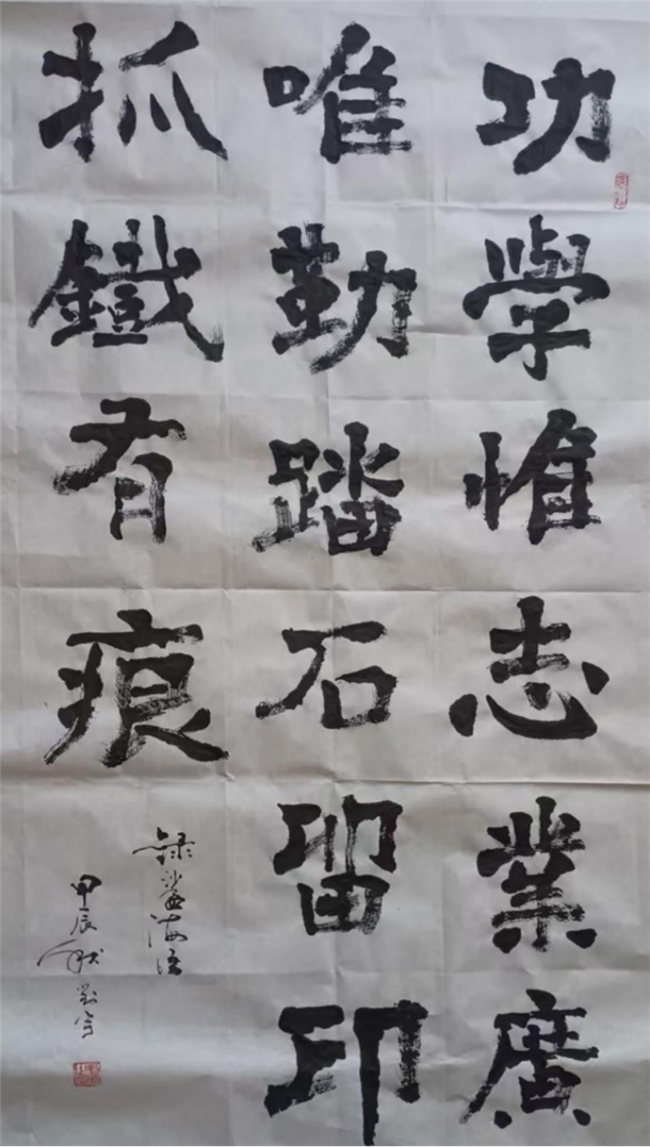 功學惟志業廣
唯勤踏石留印
抓鐵有痕
錄
甲辰秋